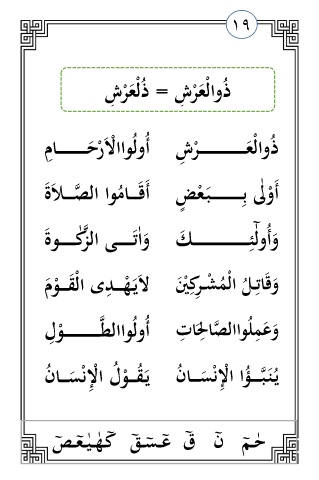 ١٩
ذُوالْعَرْشِ = ذُلْعَرْشِ
ذُوالْعَـــــرْشِ أُولُواالْاَرْحَـــامِ
أَوْلٰى بِــــبَعْضٍ أَقَـامُوا الصَّـلاَةَ
وَأُولٰٓئِـــــــكَ وَاٰتَـــى الزَّكٰـــوةَ
وَقَاتِـلُ الْمُشْـرِكِيْنَ لاَيَهْـدِى الْقَـوْمَ
وَعَمِلُواالصَّالِحَاتِ أُولُواالطَّـــوْلِ
يُنَبَّـؤُا الْاِنْسَـانُ يَقُـوْلُ الْاِنْسَـانُ
حٰـمٓ نٓ قٓ عٓـسٓـقٓ كٓـهٰـيٰـعٓـصٓ